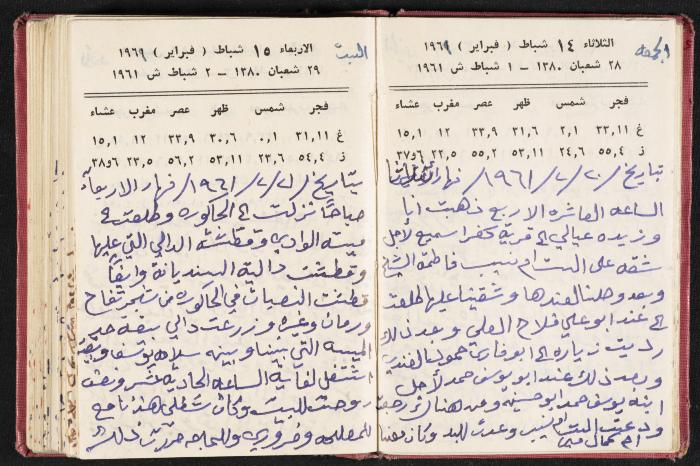 الجمعه
الثلاثاء ١٤ شباط ( فبراير ) ١٩٦٩
٢٨ شعبان ١٣٨٠ – ١ شباط ش ١٩٦١
فجر شمس ظهر عصر مغرب عشاء
غ ٣٣,١١ ٢,١ ٣١,٦ ٣٣,٩ ١٢ ١٥,١
ز ٥٥,٤ ٢٤,٦ ٥٣,١١ ٥٥,٢ ٢٢,٥ ٣٧و٦
بتاريخ /٢٠/ ٢/ ١٩٦١/ نهار
الساعه العاشره الا ربع ذهبت انا
وزيده عيالي الى قرية كفر اسميع لاجل
شقه على الست ام نسيب فاطمة الشيخ
وبعد وصلنا لعندها وشقينا عليها طلعت
الى عند ابو علي فلاح العلي وبعد ذلك
رديت زياره الى ابو فارس حمود
وبعد ذلك عند ابو يوسف حمد لأجل
ابنه يوسف حمد ابو حسين ومن هناك رجعت
ودعيت الست ام نسيب وعدت للبلد وكان معنا
السبت
الاربعاء ١٥ شباط ( فبراير ) ١٩٦٩
٢٩ شعبان ١٣٨٠ – ٢ شباط ش ١٩٦١
فجر شمس ظهر عصر مغرب عشاء
غ ٣١,١١ ٠,١ ٣٠,٦ ٣٣,٩ ١٢ ١٥,١
ز ٥٤,٤ ٢٣,٦ ٥٣,١١ ٥٦,٢ ٢٣,٥ ٣٨و٦
بتاريخ /٢١/ ٢/ ١٩٦١/ نهار الاربعاء
صباحاً نزلت الى الحاكوره وطلعت
ميته الوادي وقطشت الدوالي التي عليها
وقطشت دالية السنديانة وايضاً
قطشت النصبات في الحاكوره من شجر تفاح
ورمان وغيره وزرعت دالي بقنه حد
الميسه التي بيننا وبين سلامه يوسف وبقيت
اشتغل لغاية الساعه الحادية عشر ونصف
روحت للبيت وكان شغلي هذا نافع
للمصلحه وضروري وللحاجه حررت ذلك